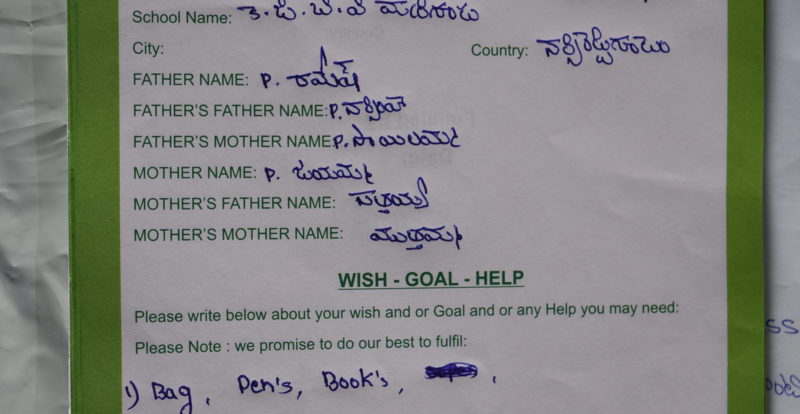 School Name:
City: Country:
FATHER NAME: P. రమేష్
FATHER'S FATHER NAME: P.
FATHER'S MOTHER NAME P. సాయిలమ్మ
MOTHER NAME: P. జయమ్మ
MOTHER'S FATHER NAME:
MOTHER'S MOTHER NAME: ముత్తమ్మ
WISH - GOAL - HELP
Please write below about your wish and or Goal and or any Help you may need:
Please Note : we promise to do our best to fulfil:
1) Bag, Pen's, Book's, ,
ss